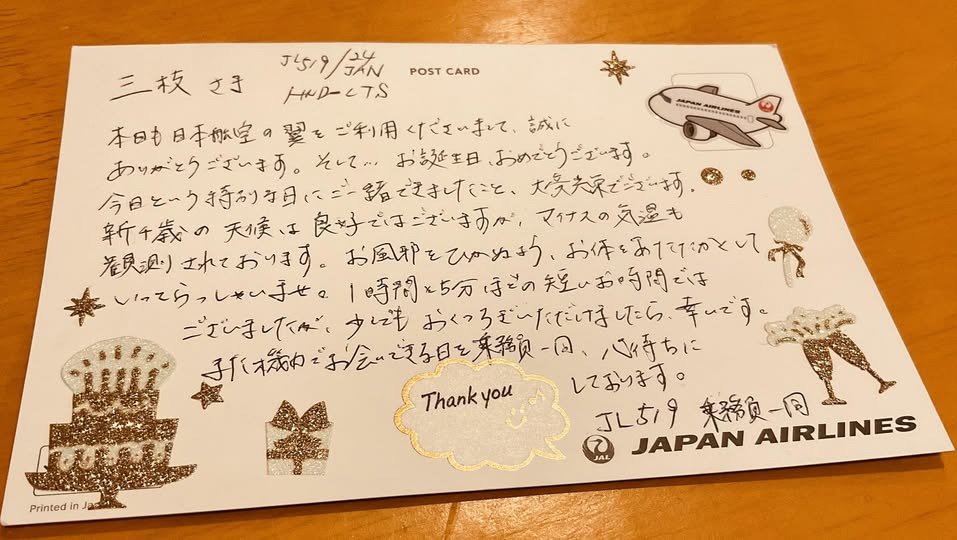 三枝 さま
JL519/24 JAN
HND-CTS
POST CARD
JAPAN AIRLINES
本日も日本航空の翼をご利用くださいまして、誠に
ありがとうございます。そして… お誕生日、おめでとうございます。
今日という特別な日にご一緒できましたこと、大変光栄でございます。
新千歳の天候は良好ではございますが、マイナスの気温も
観測されております。お風邪をひかぬよう、お体をあたたかくして
いってらっしゃいませ。1時間と5分ほどの短いお時間では
ございましたが、少しでもおくつろぎいただけましたら、幸いです。
また機内でお会いできる日を乗務員一同、心待ちに
しております。
Thank you
JL519 乗務員一同
JAL JAPAN AIRLINES
Printed in